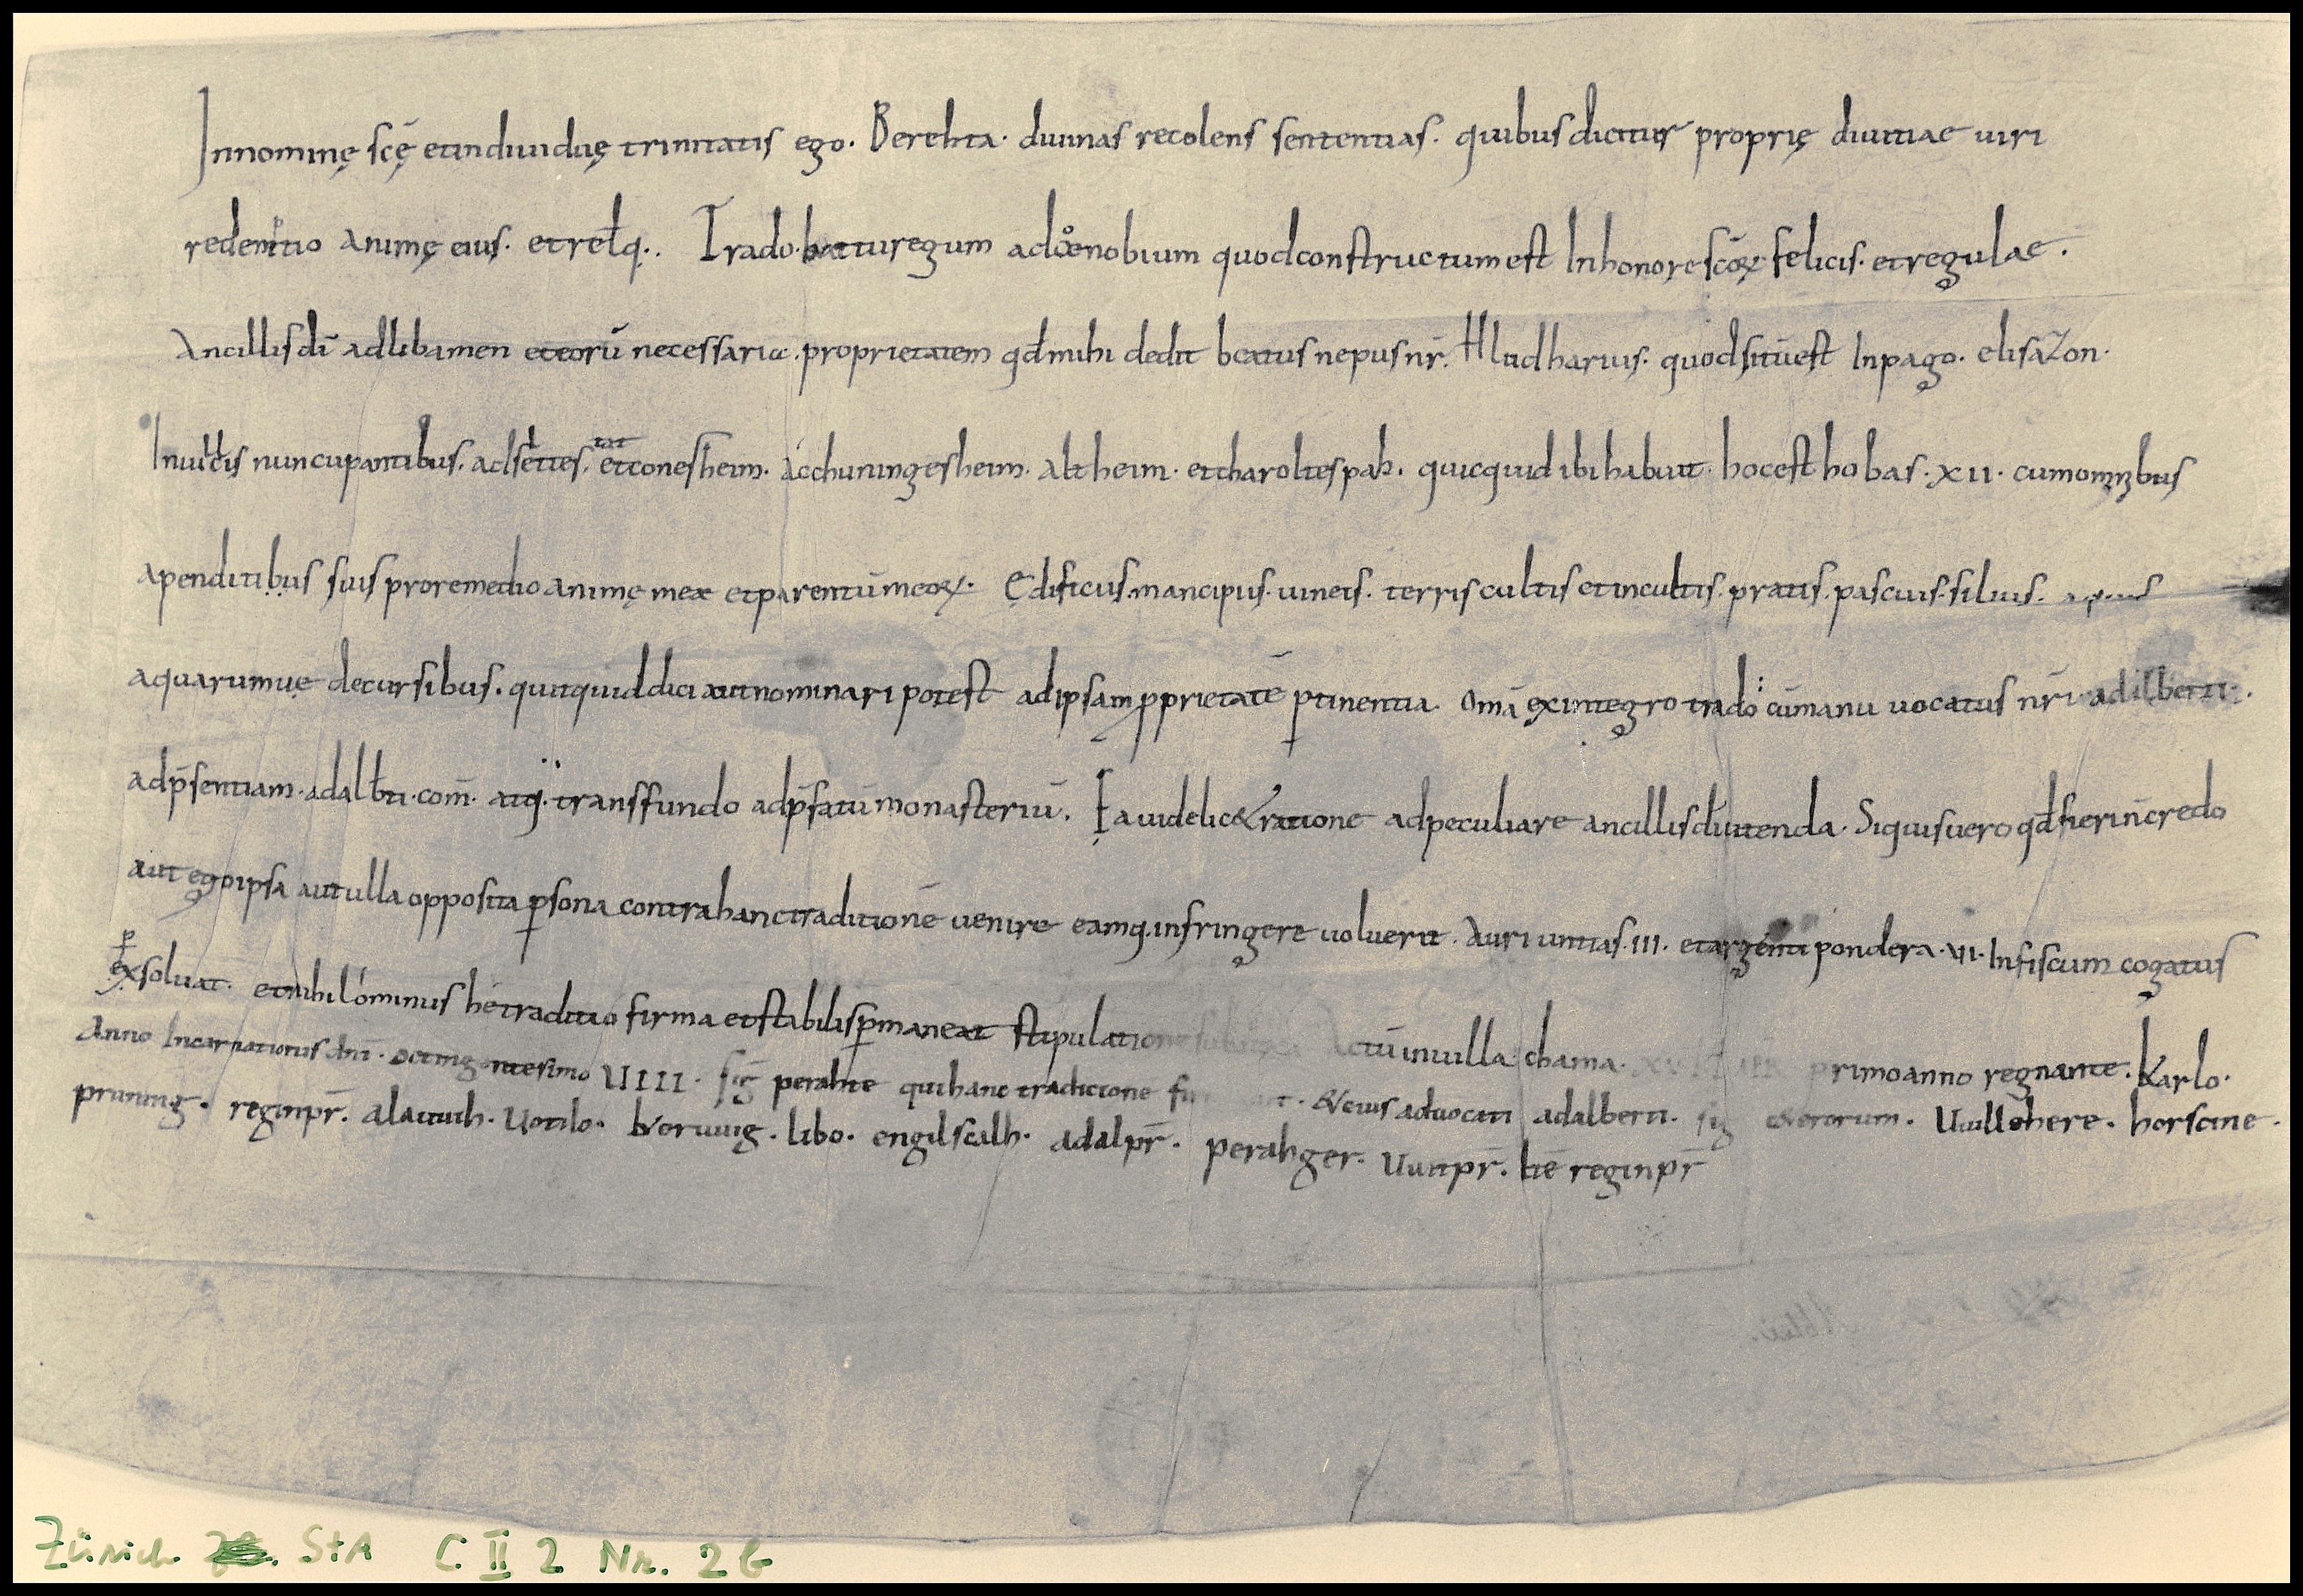 Innominę scę̄ etindiuiduę trinitatis ego. Berehta. diuinas recolens sententias. quibus dicitur proprię diuitiae uiri
redemptio animę eius. et reł q. Trado adcoenobium quodconstructumest Inhonore scōꝝ felicis. etregulae.
Ancillis dī adlibamen eteorū necessaria. proprietatem qđ mihi dedit beatus nepus nr̄. Hludharius. quodsitūest Inpago. elisazon.
Inuicis nuncupantibus. etconesheim. achuningesheim. altheim. quicquid ibi habuit. hocest hobas. XII. cum
apenditibus suis proremedio animę meę etparentūmeoꝝ. Ędificiis. mancipiis. uineis. terris cultis etincultis. pratis. pascuis. siluis. aquis
aquarumuę decursibus. quicquiddici autnominari potest adipsam pprietatē ptinentia. omā exintegro trado cūmanu uocatus nr̄i adilberti.
adp̄sentiam. adalbti. com̄. atq. transfundo adp̄fatū monasteriū. Ea uidelic& ratione adpeculiare ancillis dī utenda. Siquisuero qđ fierin̄credo
aut egoipsa autulla opposita psona contrahanctraditionē uenire eamq. infringere uoluerit. Auri untias. III. etargenti pondera. VI. Infiscum cogatus
exsoluat. etnihilominus hectraditio firma etstabilis pmaneat stipulatione Actū inuilla chama. primoanno regnante. Karlo.
Anno Incarnationis dnī. octingentesimo VIIII. siḡ perahte quihanc tradicione &eius aduocati adalberti. sig &eterorum. Uuillehere. horscine.
pruning. reginpr̄. alauuih. Uotilo. libo. engilscalh. adalpr̄. perahger. Uuitpr̄. reginpr̄
Zürich StA C II 2 Nr. 26